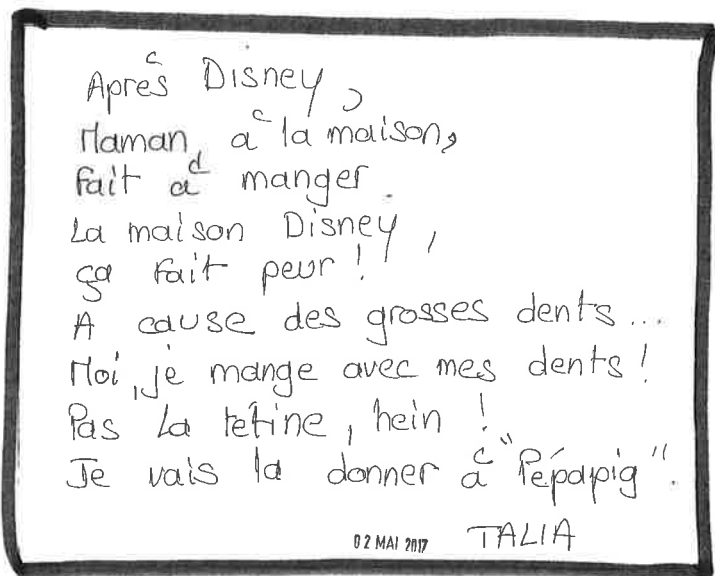 Après Disney,
Maman, à la maison,
fait à manger.
La maison Disney,
ça fait peur !
A cause des grosses dents...
Moi, je mange avec mes dents !
Pas la tétine, hein !
Je vais la donner à "Pépapig".
02 MAI 2017 TALIA